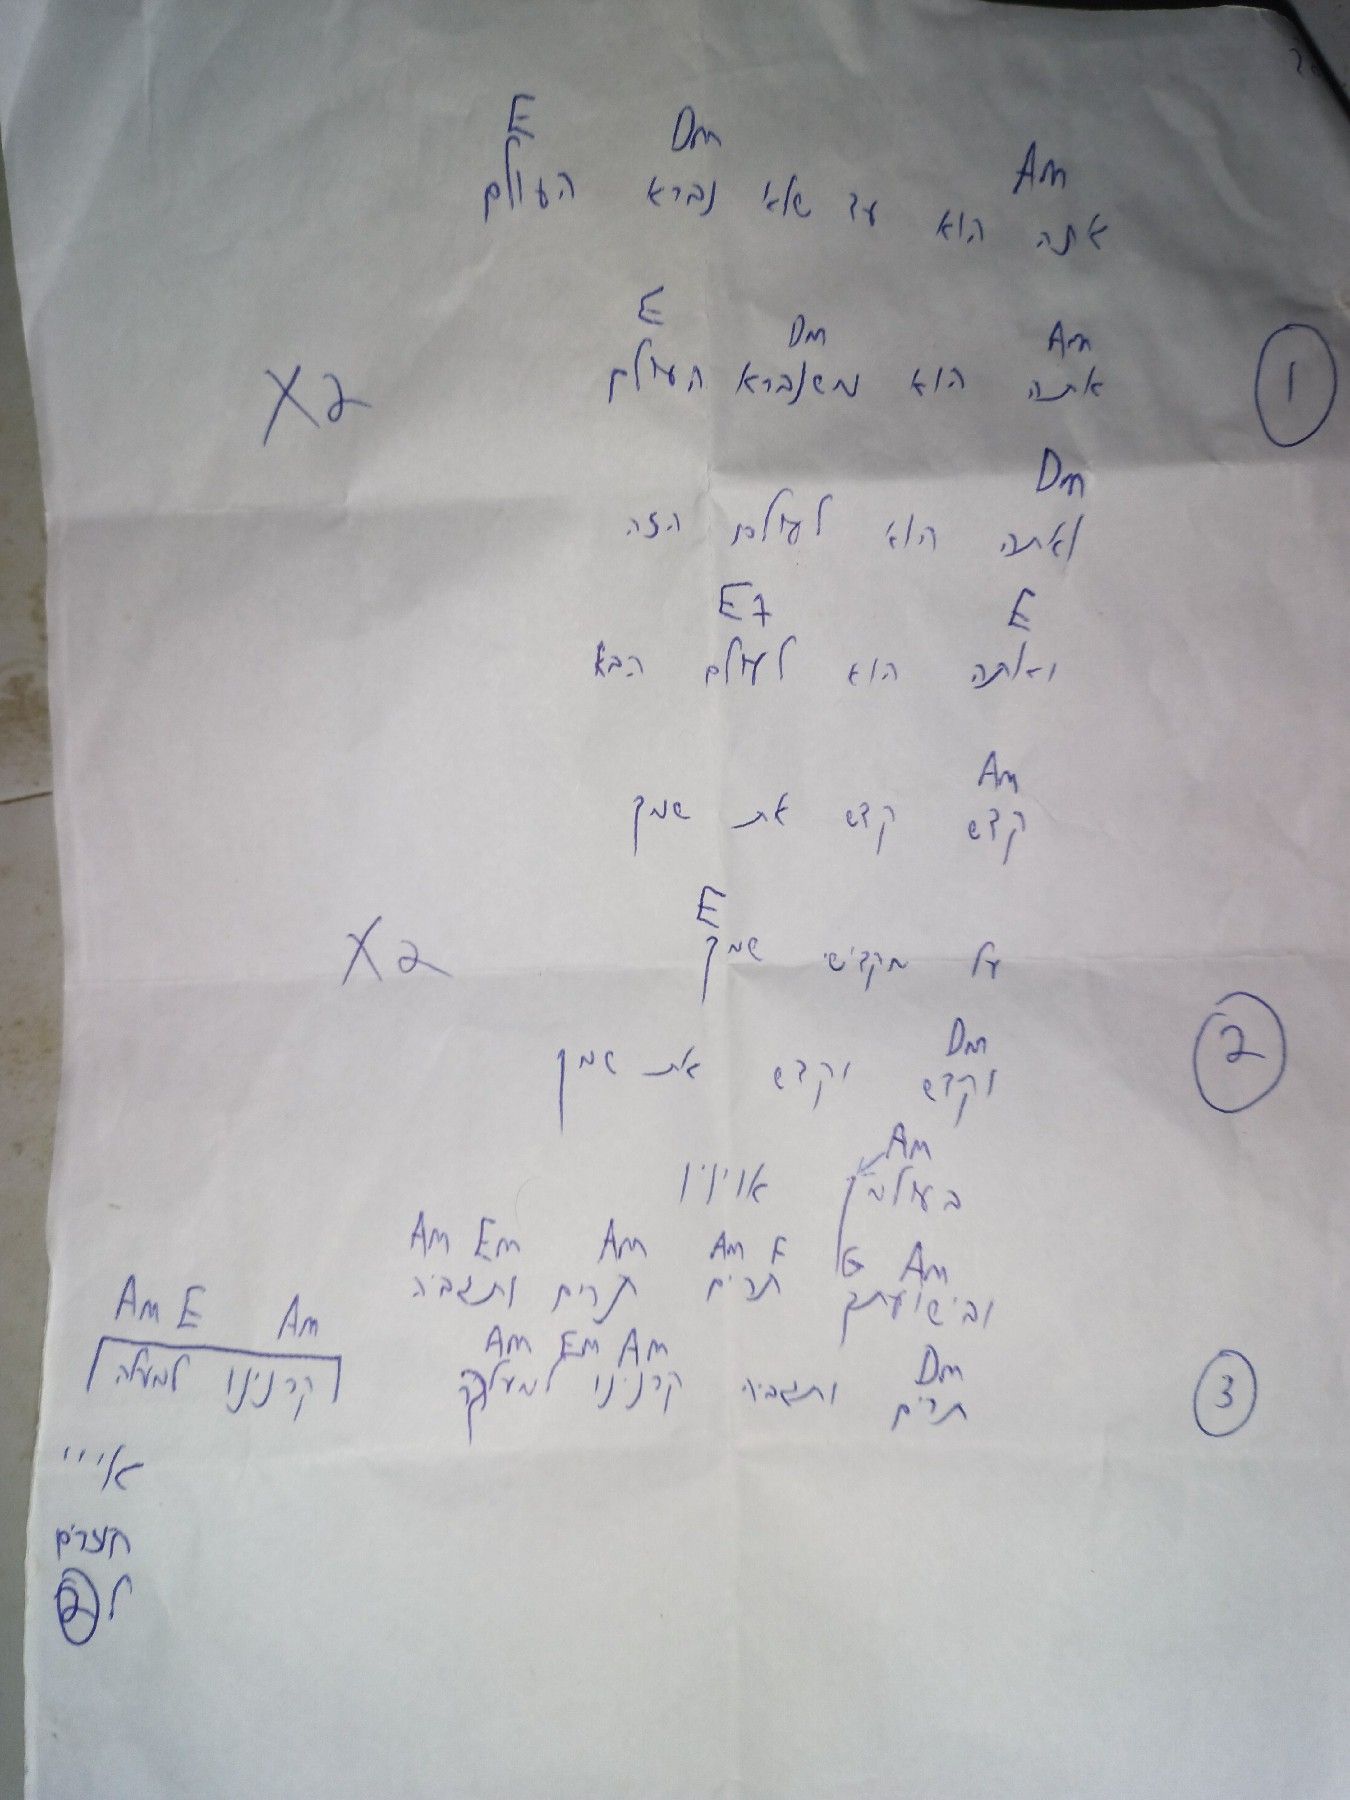 Am Dm E
אתה הוא עד שלא נברא העולם
Am Dm E
① אתה הוא משנברא העולם X2
Dm
ואתה הוא לעולם הזה
E E7
ואתה הוא לעולם הבא
Am
קדש קדש את שמך
E
על מקדישי שמך X2
②
Dm
וקדש וקדש את שמך
Am
בעולמך אויויו
Am G Am F Am Em Am
ובישועתך תרים תרים ותגביה
Dm Am Em Am Am E Am
③ תרים ותגביה קרנינו למעלה קרנינו למעלה
אי'''
חוזרים
ל②